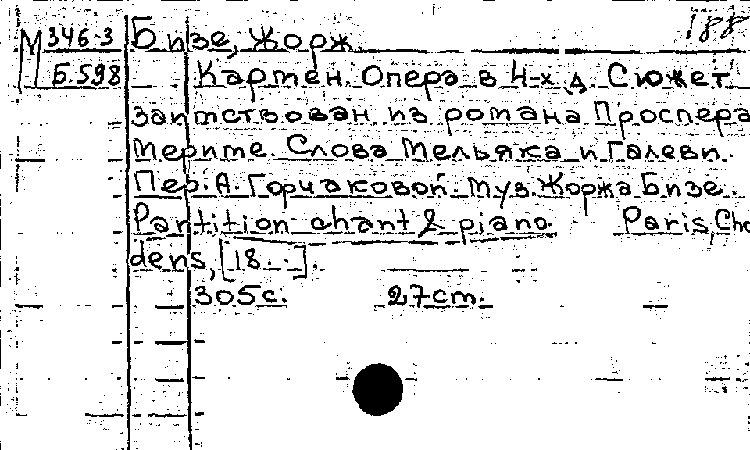 188
М 346-3 Бизе, Жорж
Б 598 Кармен. Опера в 4-х д. Сюжет
заимствован из романа Проспера
Мериме. Слова Мельяка и Галеви.
Пер. А. Горчаковой. Муз. Жоржа Бизе.
Partition chant & piano Paris, Cho
dens, [18..].
305с. 27cm.